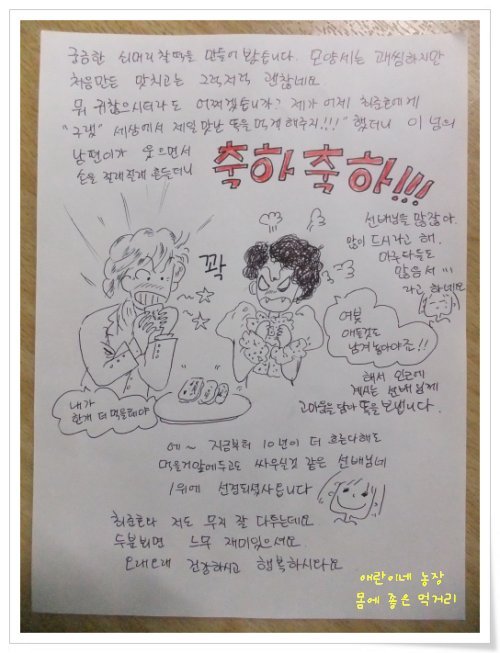 궁금한 쇠머리찰떡을 만들어 봤습니다. 모양새는 괘씸하지만
처음만든 맛치고는 그럭저럭 괜찮네요.
뭐 귀찮으시더라도 어쩌겠습니까? 제가 어제 에게
"구랬" 세상에서 제일 맛난 떡을 먹게 해주지!!!" 했더니 이 넘의
남편이가 웃으면서
손을 절레절레 흔든더니
축하축하!!!
선배님들 많잖아.
많이 드시라고 해.
마루다들도
많음서 '''
라고 하네요
꽉
여봇
애들것도
남겨놓아야죠!!
내가
한개 더 먹을테야
해서 인근에
계시는 선배님께
고마움을 담아 떡을 보냅니다.
에~ 지금부터 10년이 더 흐른다해도
먹을거앞에두고도 싸우실것 같은 선배님네
1위에 선정되셨사옵니다
저도 무지 잘 다투는데요
두분뵈면 느무 재미있으셔요.
오래오래 건강하시고 행복하시와요
애란이네 농장
몸에 좋은 먹거리